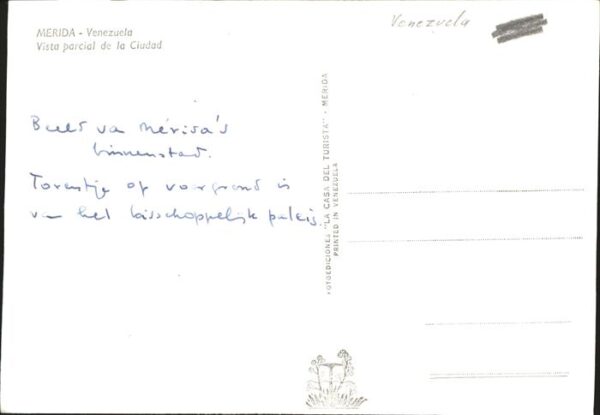 MERIDA - Venezuela
Vista parcial de la Ciudad
Venezuela
Beeld va Mérida's
binnenstad.
Torentje op voorgrond is
va het bisschoppelijk paleis.
FOTOEDICIONES "LA CASA DEL TURISTA" - MERIDA
PRINTED IN VENEZUELA